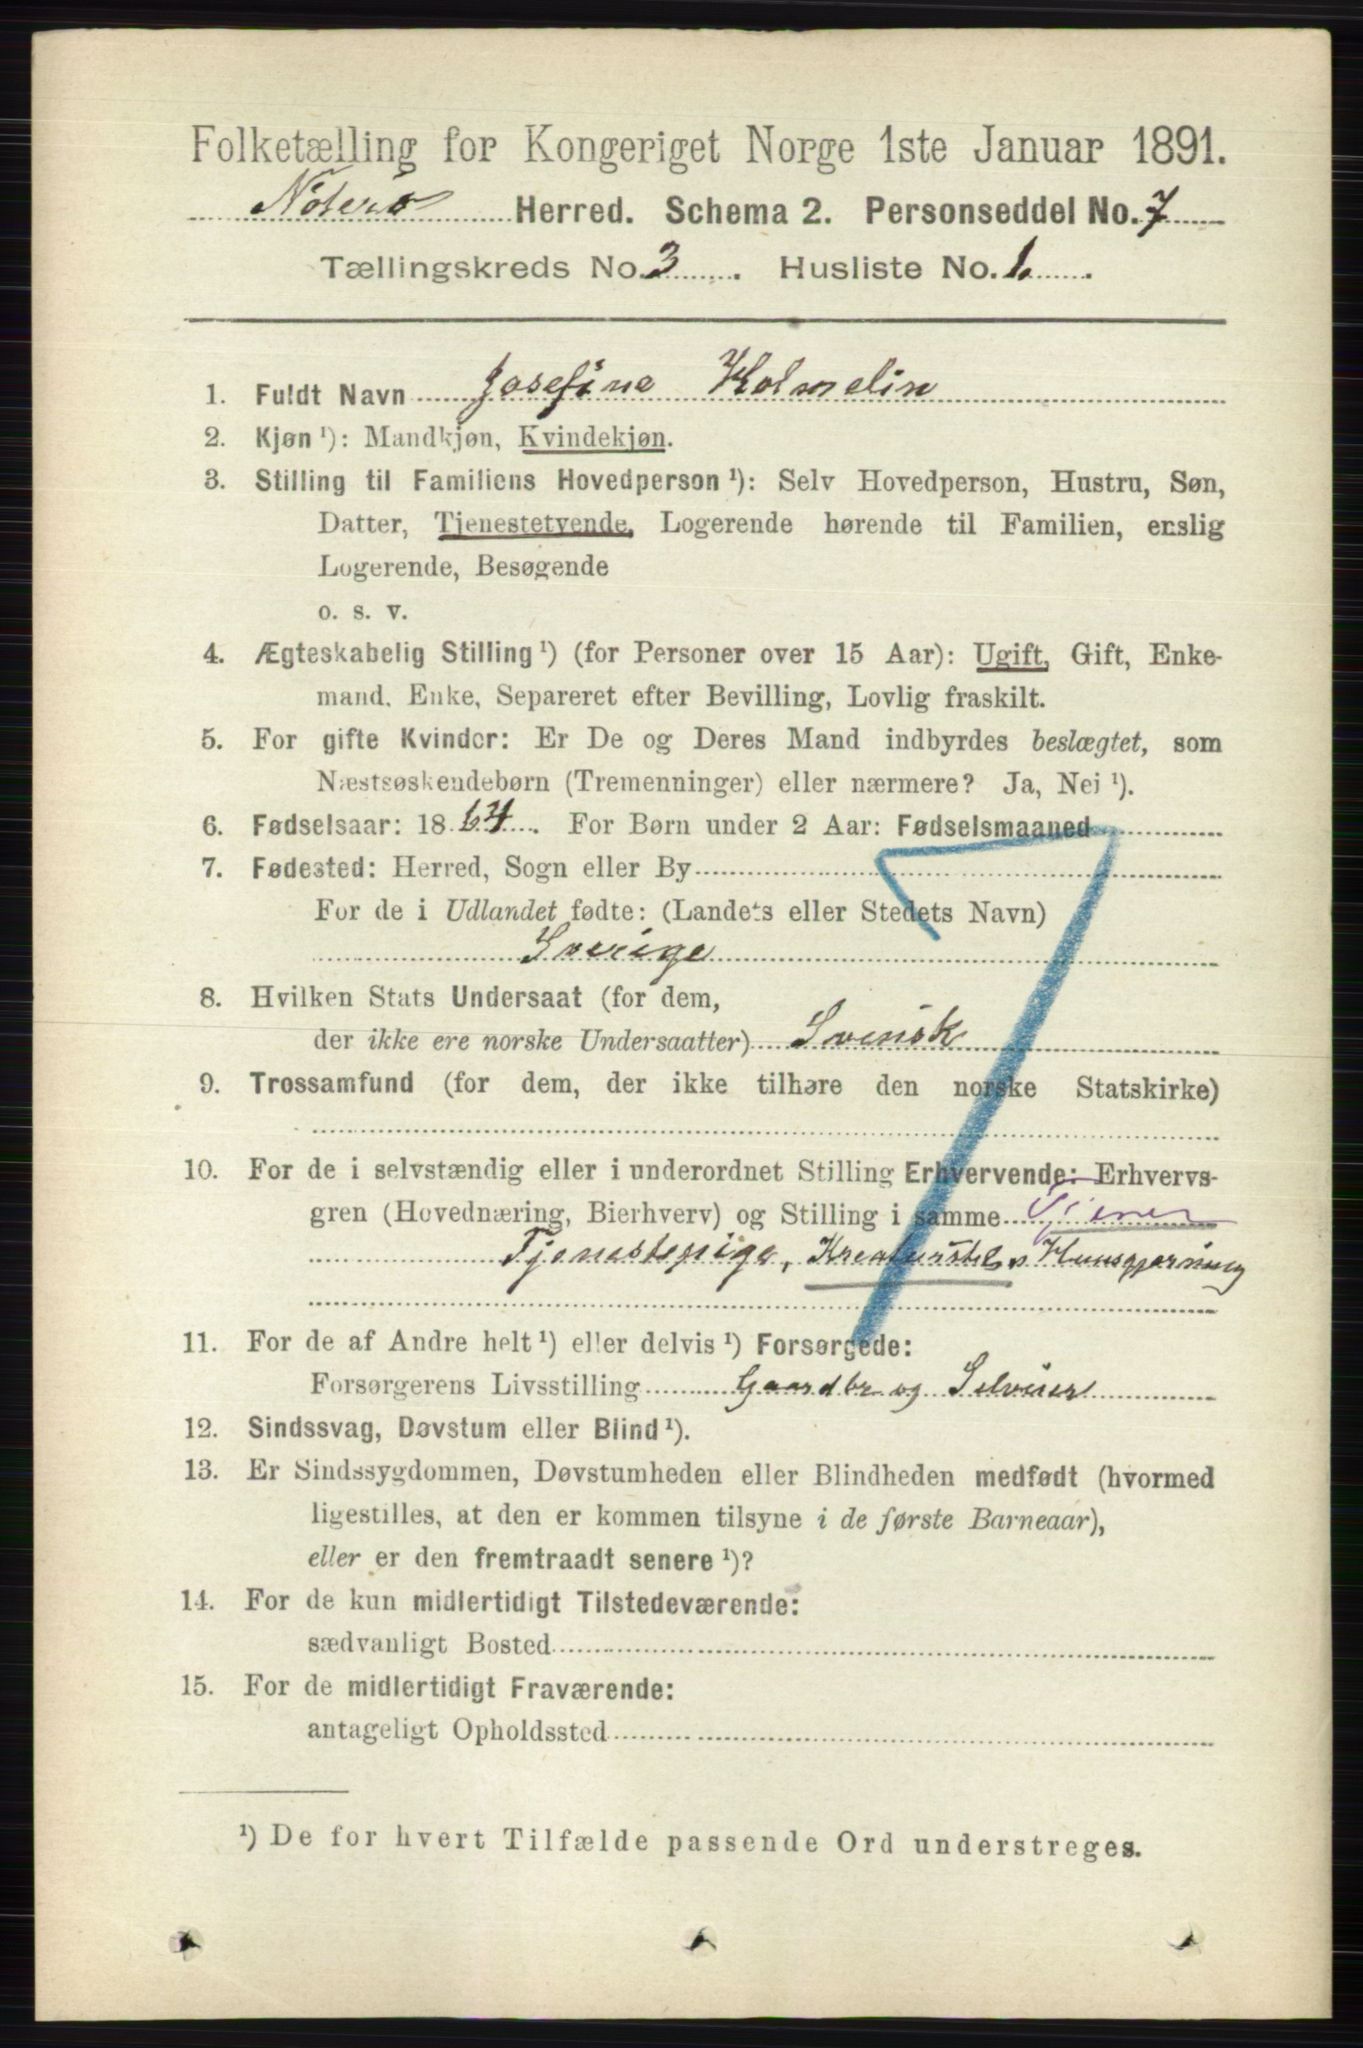 Folketælling for Kongeriget Norge 1ste Januar 1891.
Nøterø Herred. Schema 2. Personseddel No. 7
Tællingskreds No. 3. Husliste No. 1.
1. Fuldt Navn Josefine Holmelin
2. Kjøn ¹): Mandkjøn, Kvindekjøn.
3. Stilling til Familiens Hovedperson ¹): Selv Hovedperson, Hustru, Søn,
Datter, Tjenestetyende, Logerende hørende til Familien, enslig
Logerende, Besøgende
o. s. v.
4. Ægteskabelig Stilling ¹) (for Personer over 15 Aar): Ugift, Gift, Enke-
mand, Enke, Separeret efter Bevilling, Lovlig fraskilt.
5. For gifte Kvinder: Er De og Deres Mand indbyrdes beslægtet, som
Næstsøskendebørn (Tremenninger) eller nærmere? Ja, Nei ¹).
6. Fødselsaar: 1864. For Børn under 2 Aar: Fødselsmaaned
7. Fødested: Herred, Sogn eller By
For de i Udlandet fødte: (Landets eller Stedets Navn)
Sverige
8. Hvilken Stats Undersaat (for dem,
der ikke ere norske Undersaatter) Svensk
9. Trossamfund (for dem, der ikke tilhøre den norske Statskirke)
10. For de i selvstændig eller i underordnet Stilling Erhvervende: Erhvervs-
gren (Hovednæring, Bierhverv) og Stilling i samme
Tjenestepige, Kreaturstel, Huusgjerning
11. For de af Andre helt ¹) eller delvis ¹) Forsørgede:
Forsørgerens Livsstilling Gaardbr og Selveier
12. Sindssvag, Døvstum eller Blind ¹).
13. Er Sindssygdommen, Døvstumheden eller Blindheden medfødt (hvormed
ligestilles, at den er kommen tilsyne i de første Barneaar),
eller er den fremtraadt senere ¹)?
14. For de kun midlertidigt Tilstedeværende:
sædvanligt Bosted
15. For de midlertidigt Fraværende:
antageligt Opholdssted
¹) De for hvert Tilfælde passende Ord understreges.